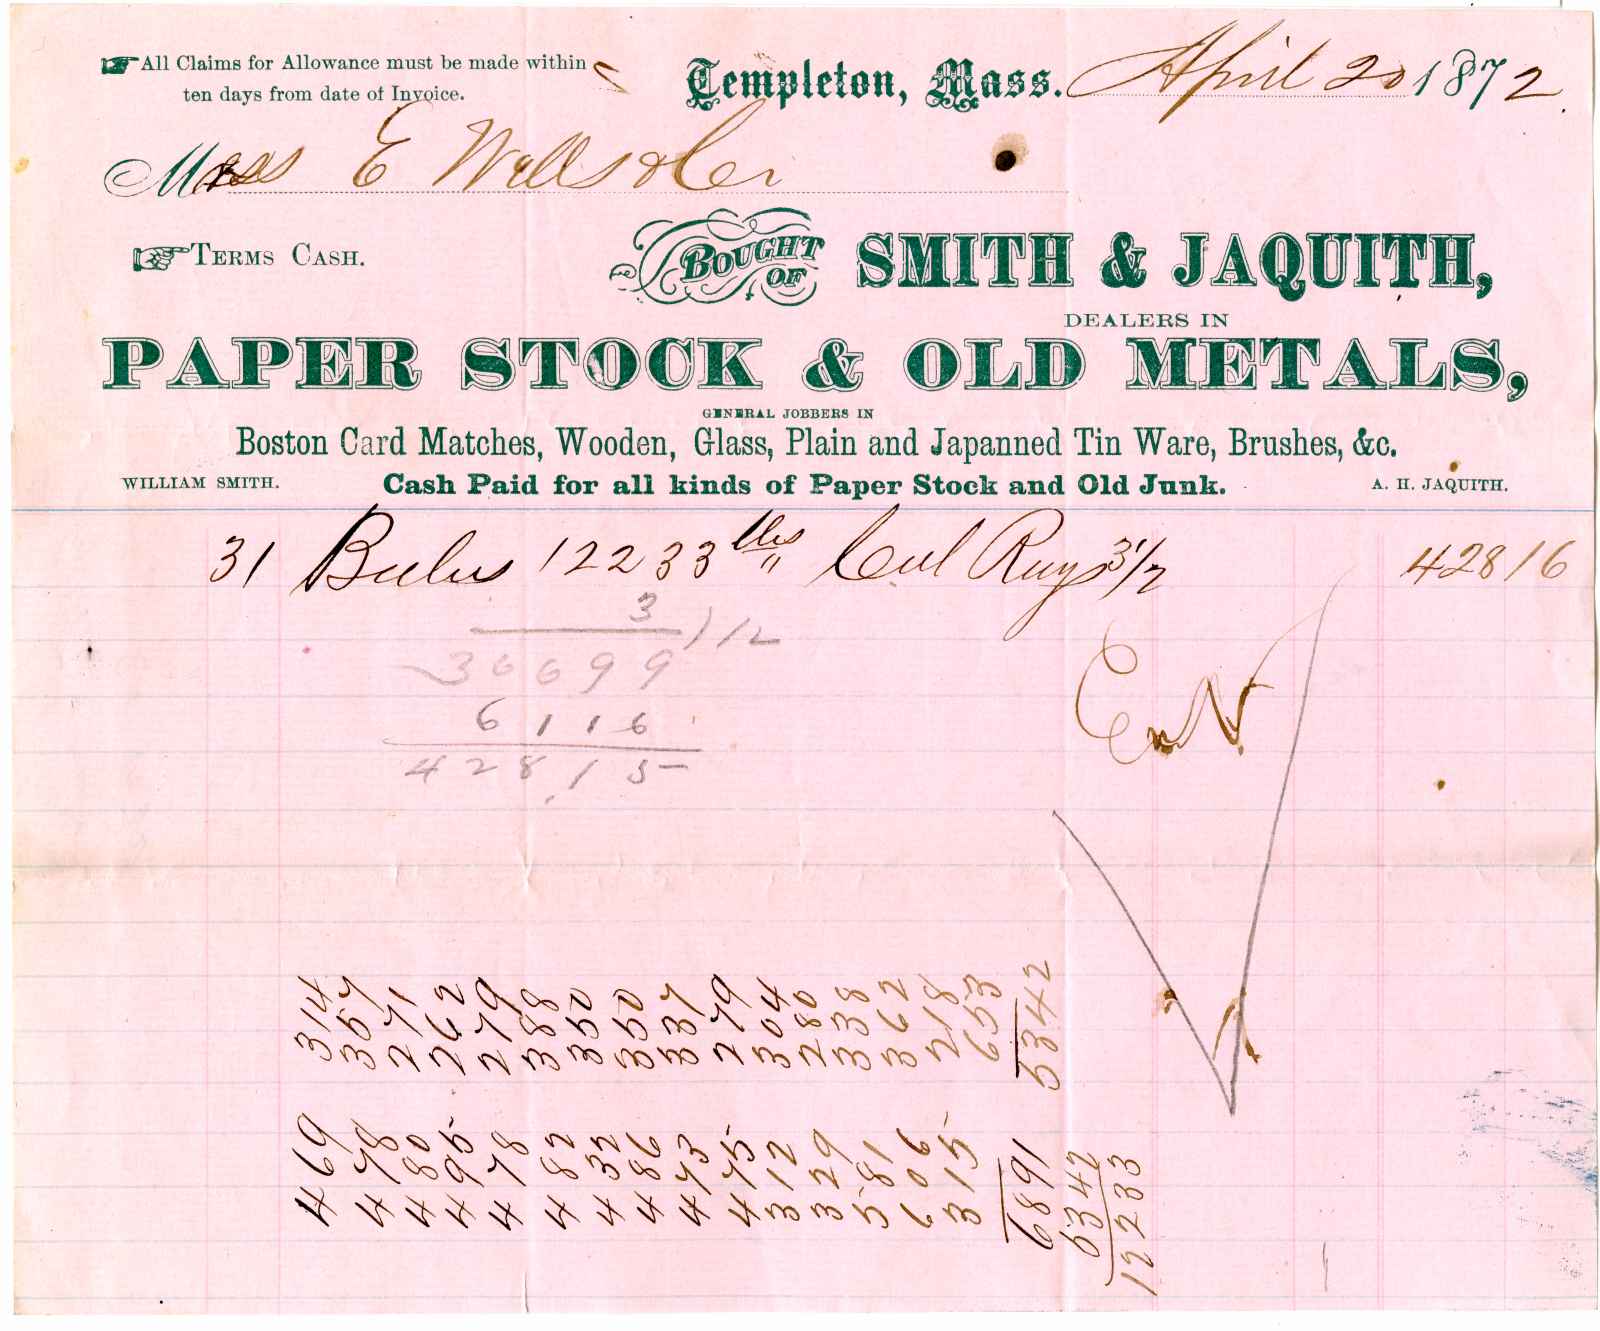 All Claims for Allowance must be made within
ten days from date of Invoice.
Templeton, Mass. April 20 1872.
Mess E Wells & Co
Terms Cash.
Bought of SMITH & JAQUITH,
DEALERS IN
PAPER STOCK & OLD METALS,
GENERAL JOBBERS IN
Boston Card Matches, Wooden, Glass, Plain and Japanned Tin Ware, Brushes, &c.
WILLIAM SMITH. Cash Paid for all kinds of Paper Stock and Old Junk. A. H. JAQUITH.
31 Bales 12233 lbs Col Rags 3 1/2 428 16
3
) 12
36699
6116
428.15
314
357
271
262
279
388
350
350
337
279
304
280
338
362
218
653
5342
469
478
480
495
478
482
432
486
473
475
312
329
581
606
315
6891
5342
12233